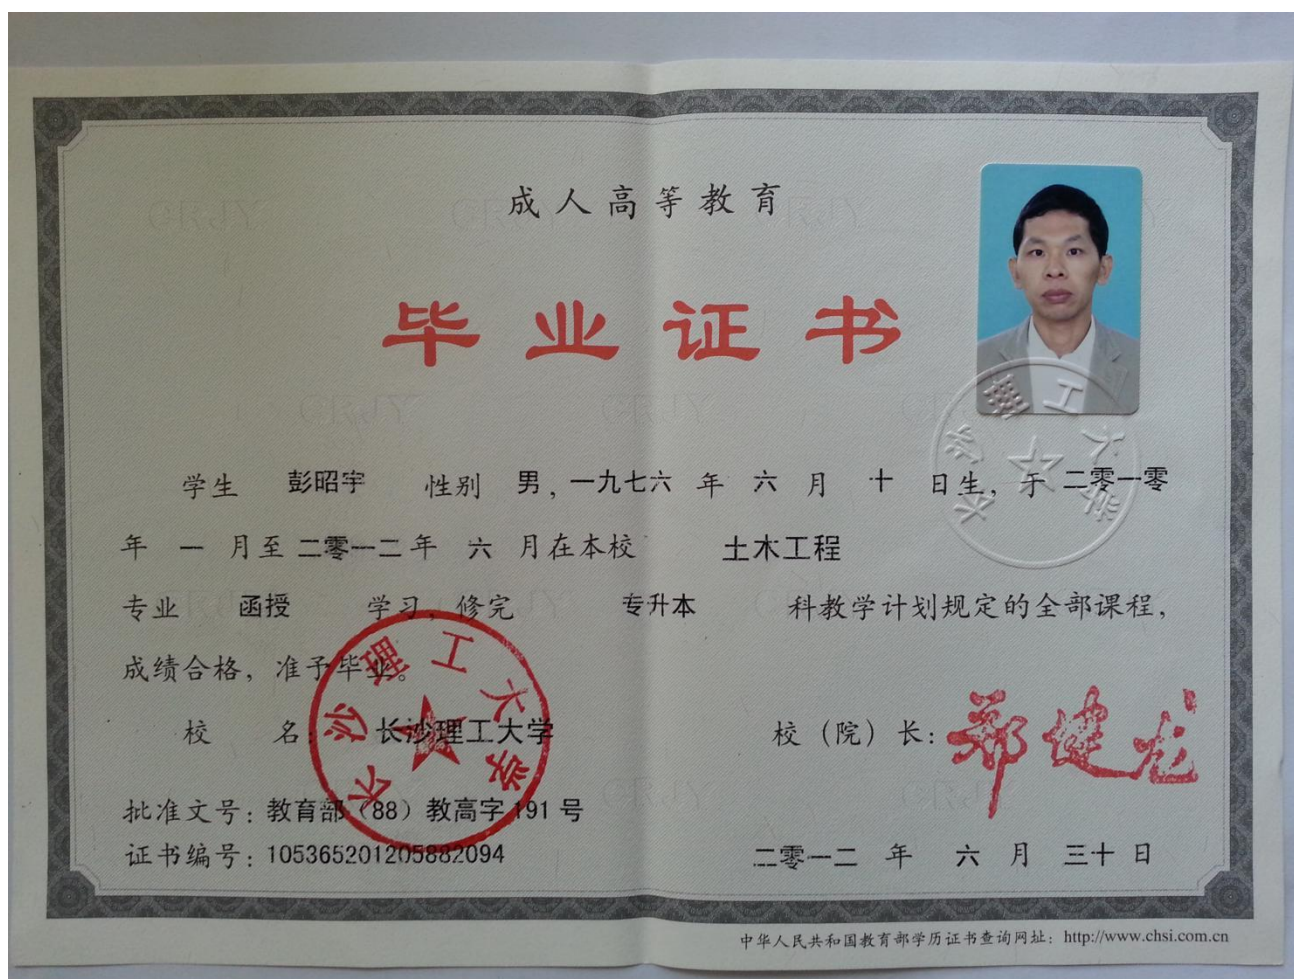 成人高等教育
毕业证书
学生 彭昭宇 性别 男,一九七六 年 六 月 十 日生,于 二零一零
年 一 月至 二零一二 年 六 月在本校 土木工程
专业 函授 学习,修完 专升本 科教学计划规定的全部课程,
成绩合格,准予毕业。
校 名: 长沙理工大学
校(院)长: 郑健龙
批准文号: 教育部(88)教高字191号
证书编号: 105365201205882094
二零一二 年 六 月 三十 日
中华人民共和国教育部学历证书查询网址: http://www.chsi.com.cn
长沙理工大学
长沙理工大学